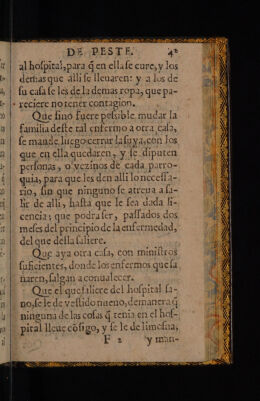 DE PESTE. 42
al hospital, para q̃ en ella se cure, y los
demas que alli se lleuaren: y a los de
su casa se les de la demas ropa, que pa-
reciere no tener contagion.
Que sino fuere possible mudar la
familia deste tal enfermo a otra casa,
se mande luego cerrar la suya, con los
que en ella quedaren, y se diputen
personas, o vezinos de cada parro-
quia, para que les den alli lo necessa-
rio, sin que ninguno se atreua a sa-
lir de alli, hasta que le sea dada li-
cencia: que podra ser, passados dos
meses del principio de la enfermedad,
del que della saliere.
Que aya otra casa, con ministros
suficientes, donde los enfermos que sa
naren, salgan a conualecer.
Que el que saliere del hospital sa-
no, se le de vestido nueuo, de manera q̃
ninguna de las cosas q̃ tenia en el hos-
pital lleue cõsigo, y se le de limosna,
F 2 y man-